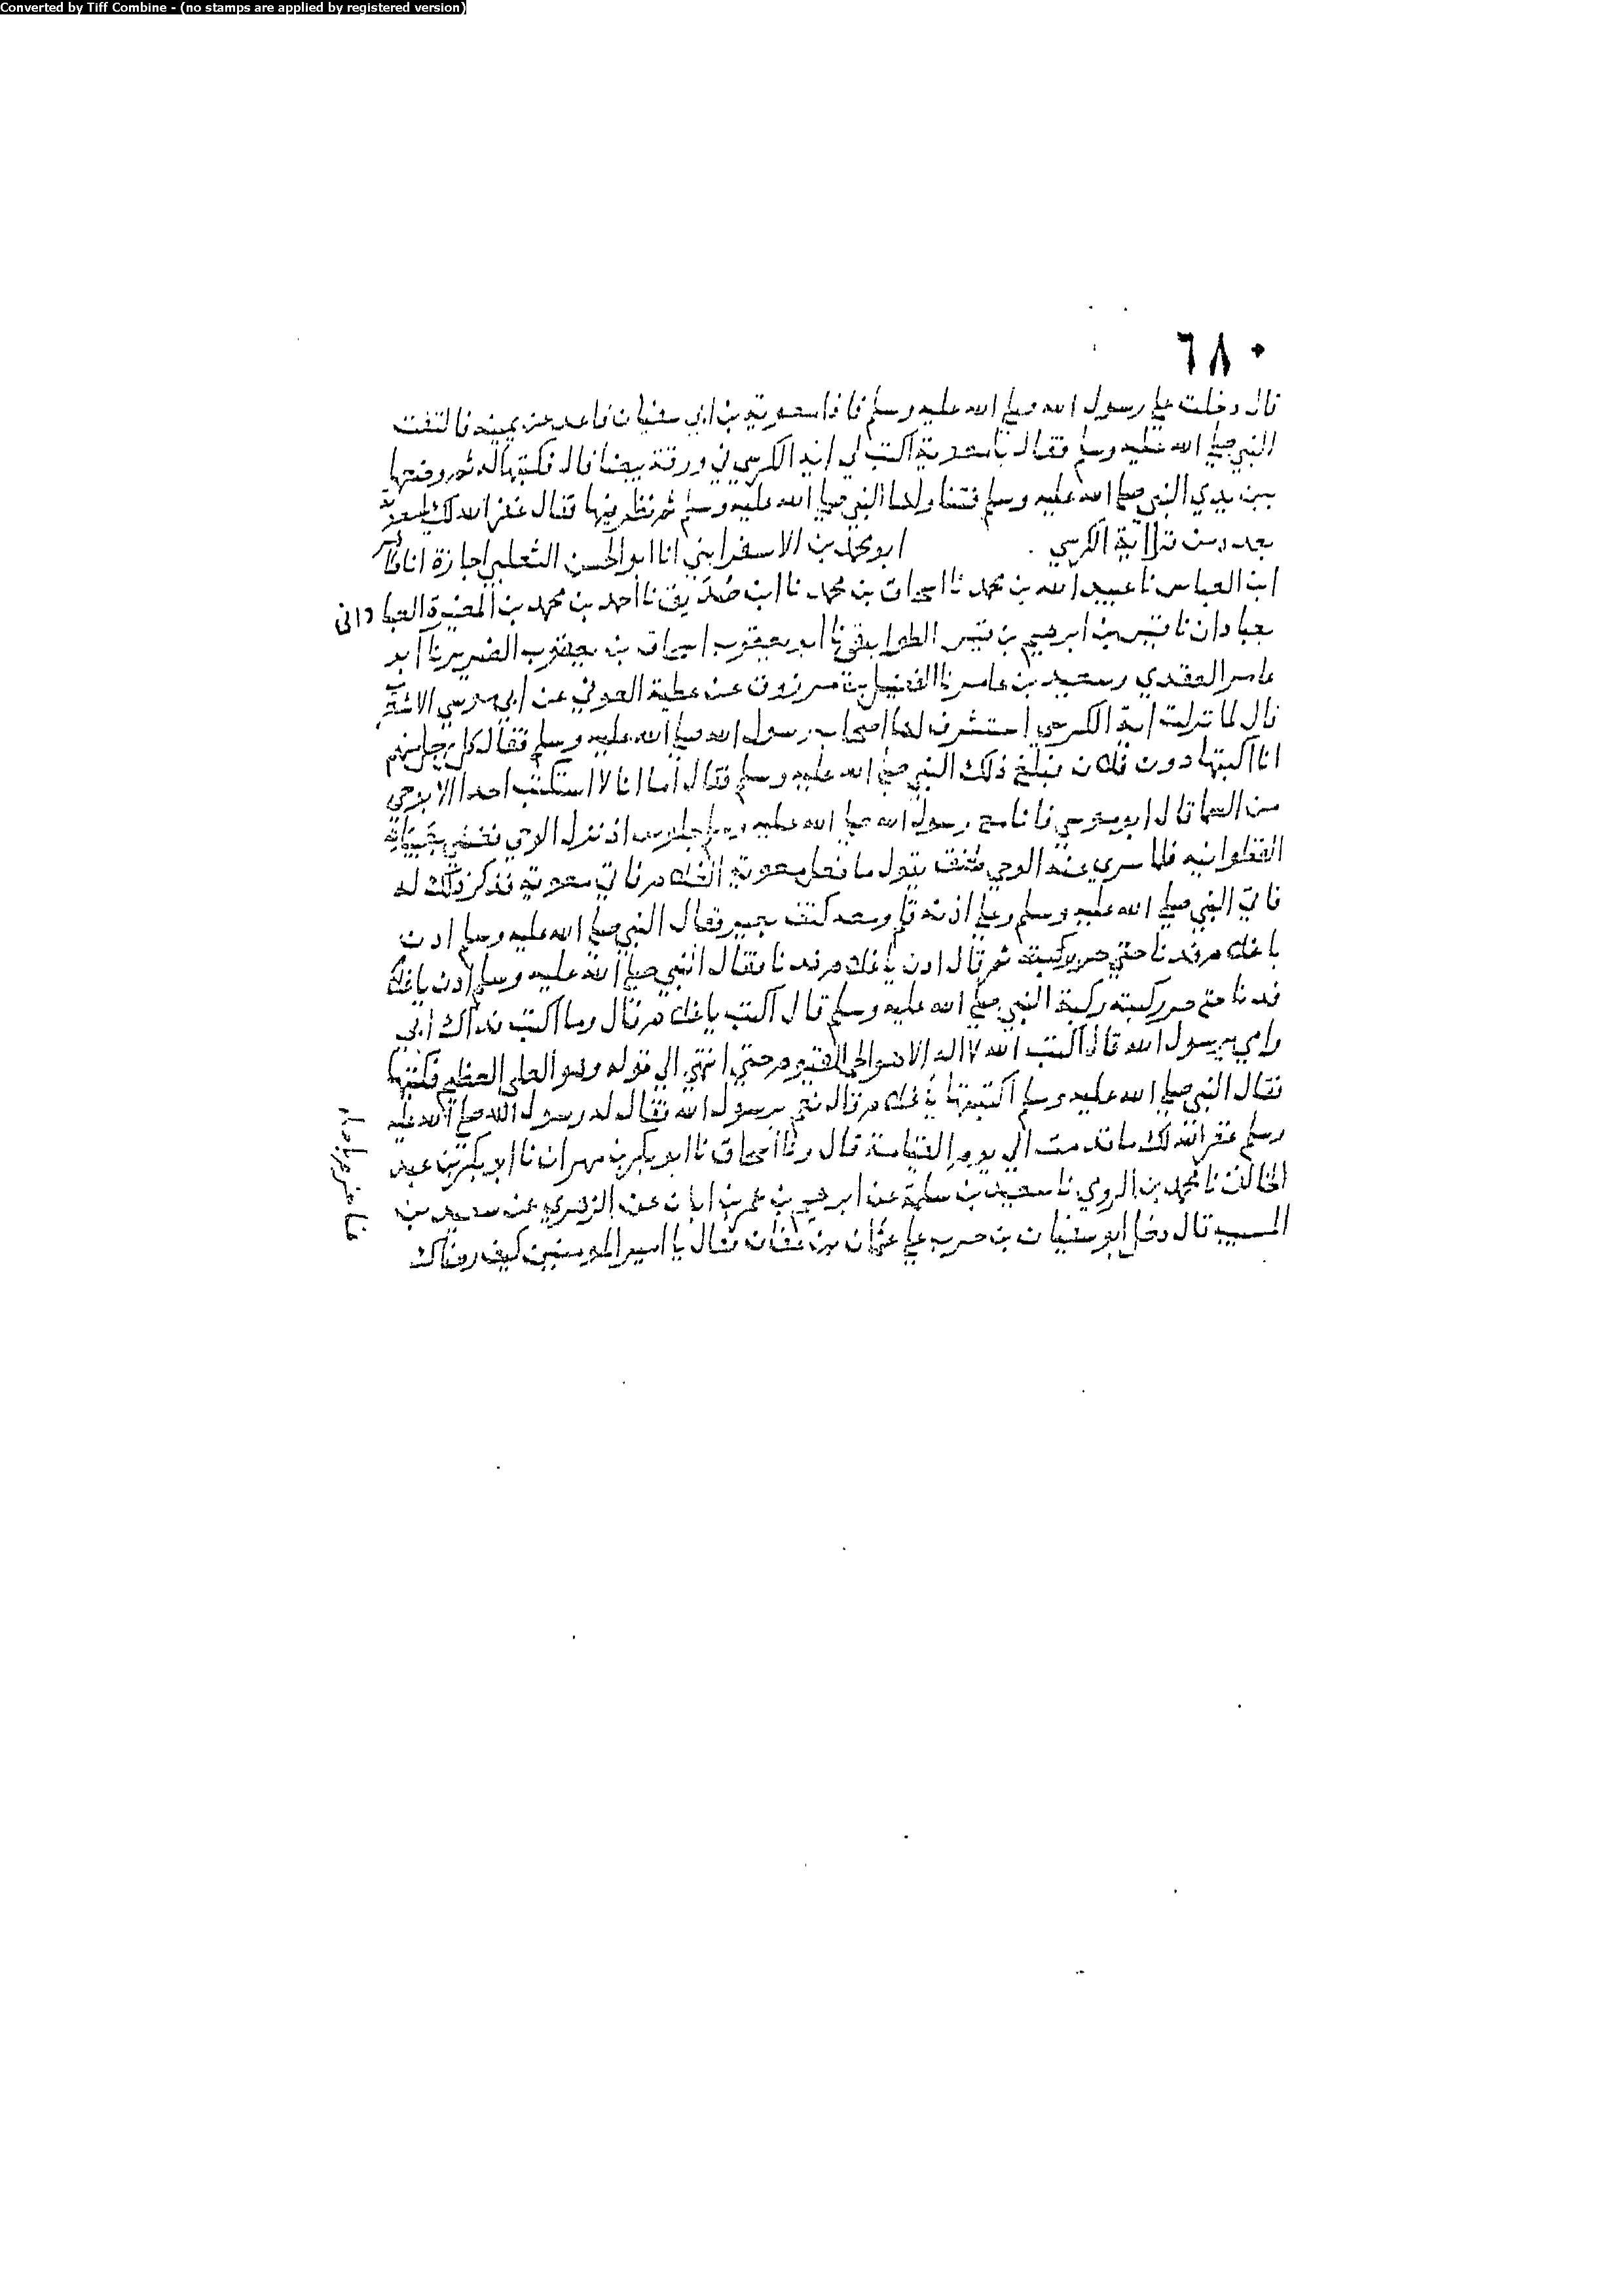 Converted by Tiff Combine - (no stamps are applied by registered version)
٦٨٠
قال دخلت على رسول الله صلى الله عليه وسلم فاذا معوية بن ابي سفيان قاعد عن يمينه فالتفت
النبي صلى الله عليه وسلم فقال يا معوية اكتب لي اية الكرسي في ورقة بيضا قال فكتبها له ثم وضعها
بين يدي النبي صلى الله عليه وسلم فتناولها النبي صلى الله عليه وسلم ثم نظر فيها فقال غفر الله لك يا معوية
بعدد من تلا اية الكرسي ابو محمد بن الاسفرايني انا ابو الحسن الثعلبي اجازة انا
ابن العباس نا عبيد الله بن محمد نا اسحاق بن محمد نا ابن صديق نا احمد بن محمد بن المغيرة العباداني
بعبادان نا بن ابرهيم بن الطوابيقي نا ابو يعقوب اسحاق بن يعقوب الضرير نا ابو
عامر العقدي وسعيد بن عامر نا الفضيل بن مرزوق عن عطية العوفي عن ابي موسي الاشعري
قال لما نزلت اية الكرسي استشرف لها اصحاب رسول الله صلى الله عليه وسلم فقال كل رجل منهم
انا اكتبها دون فلان فبلغ ذلك النبي صلى الله عليه وسلم فقال اما انا لا استكتب احدا الا بوحي
من السما قال ابو موسي فانا مع رسول الله صلى الله عليه وسلم جلوس اذ نزل الوحي
فيه فلما سري عنه الوحي طفق يقول ما فعل معوية الغلام فاتي معوية فذكر ذلك له
فاتي النبي صلى الله عليه وسلم وعلى اذنه قلم ومعه كتف بعير فقال النبي صلى الله عليه وسلم ادن
يا غلام فدنا حتي ركبته ثم قال ادن يا غلام فدنا فقال النبي صلى الله عليه وسلم ادن يا غلام
فدنا حتى ركبته ركبة النبي صلى الله عليه وسلم قال اكتب يا غلام قال وما اكتب فداك ابي
وامي يرسول الله قال اكتب الله لا اله الا هو الحي القيوم حتي انتهي الي قوله وهو العلي العظيم فكتبها
فقال النبي صلى الله عليه وسلم اكتبتها يا غلام قال نعم يرسول الله فقال له رسول الله صلى الله عليه
وسلم غفر الله لك ما قدمت الي يوم القيامة قال ونا اسحاق نا ابو بكر بن مهران نا ابو بكر بن عبد
الخالق نا محمد بن الرومي نا سعيد بن سلمة عن ابرهيم بن عمر بن ابان عن الزهري عن سعيد بن
المسيب قال دخل ابو سفيان بن حرب على عثمان بن عفان فقال يا امير المومنين كيف